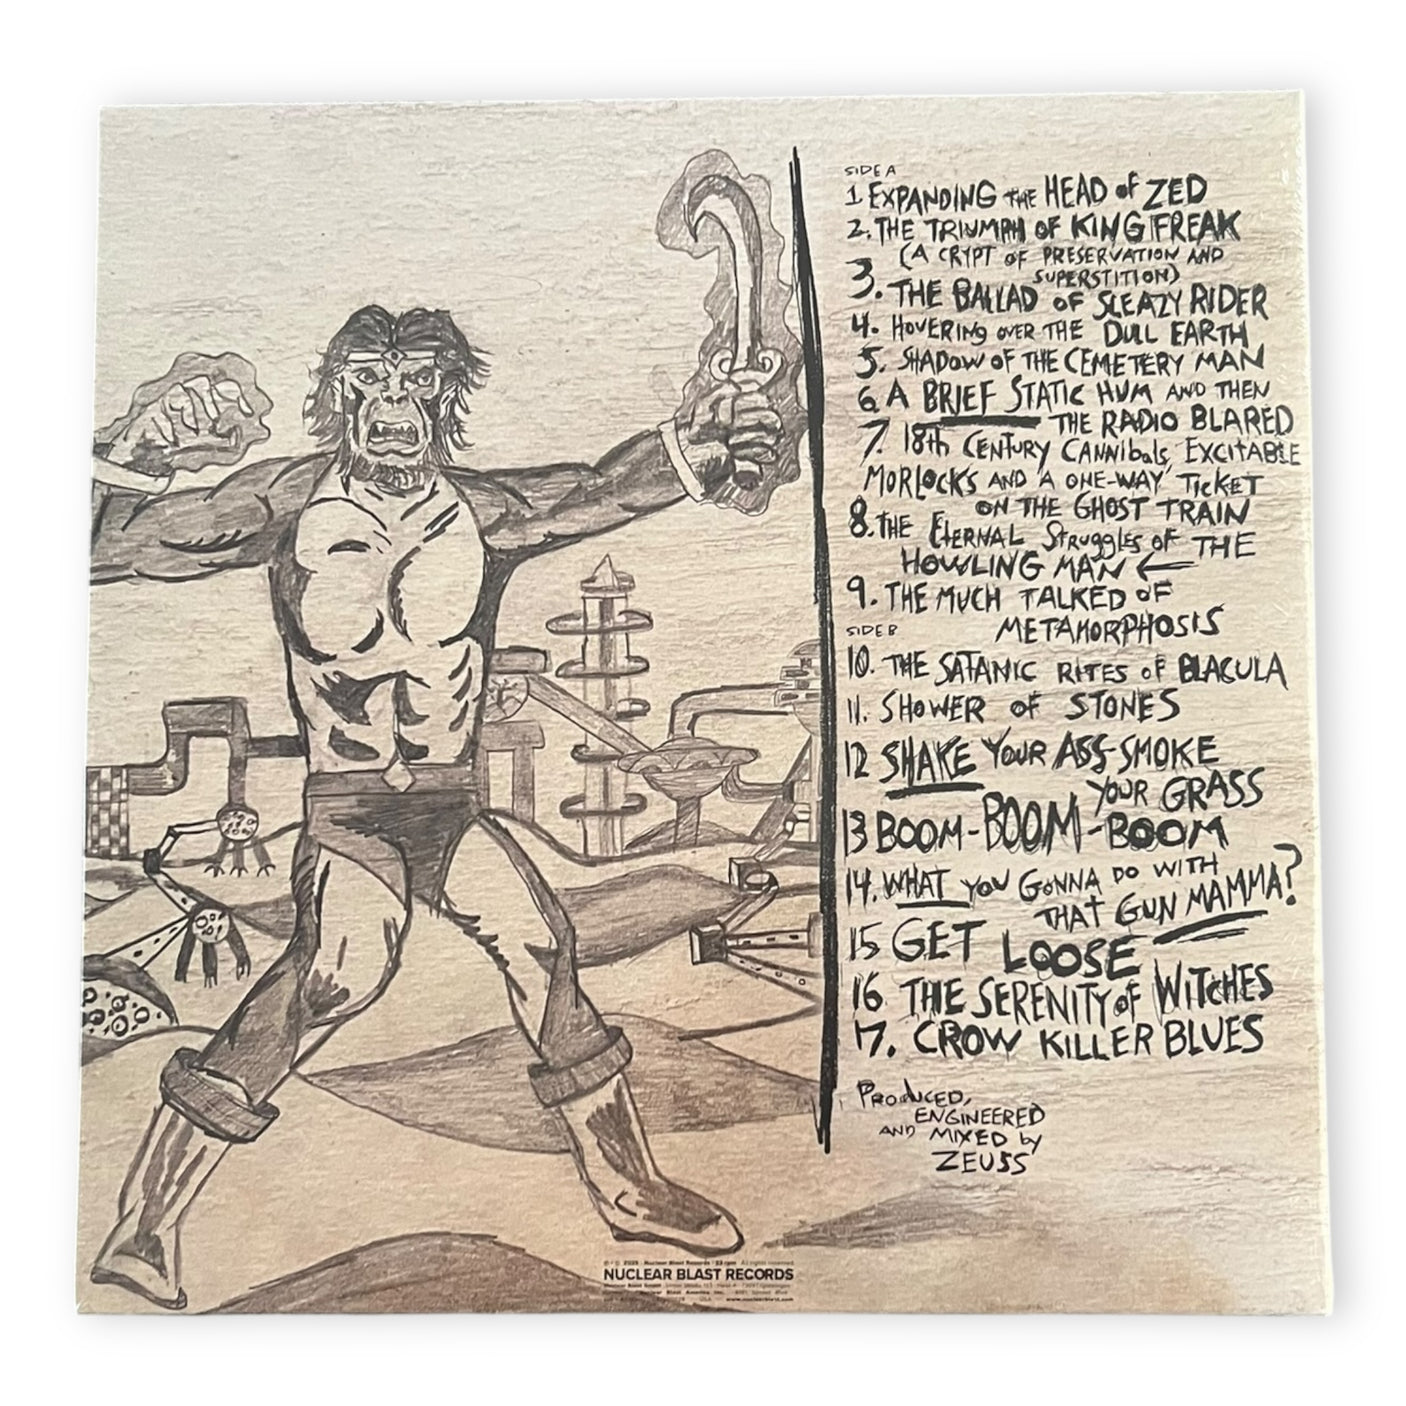 SIDE A
1 EXPANDING THE HEAD OF ZED
2. THE TRIUMPH OF KING FREAK
(A CRYPT OF PRESERVATION AND
SUPERSTITION)
3. THE BALLAD OF SLEAZY RIDER
4. HOVERING OVER THE DULL EARTH
5. SHADOW OF THE CEMETERY MAN
6 A BRIEF STATIC HUM AND THEN
THE RADIO BLARED
7. 18th CENTURY CANNIbALS, EXCITABLE
MORLOCKS AND A ONE-WAY TICKET
ON THE GHOST TRAIN
8. THE ETERNAL StruggLES OF THE
HOWLING MAN ←
9. THE MUCH TALKED OF
METAMORPHOSIS
SIDE B
10. THE SATANIC RITES OF BLACULA
11. SHOWER OF STONES
12 SHAKE YOUR ASS-SMOKE
YOUR GRASS
13 BOOM-BOOM-BOOM
14. WHAT YOU GONNA DO WITH
THAT GUN MAMMA?
15 GET LOOSE
16 THE SERENITY OF WITCHES
17. CROW KILLER BLUES
PRODUCED,
ENGINEERED
AND MIXED by
ZEUSS
Nuclear Blast Records · 33 rpm All rights reserved.
NUCLEAR BLAST RECORDS
Nuclear Blast America, Inc.
USA www.nuclearblast.com